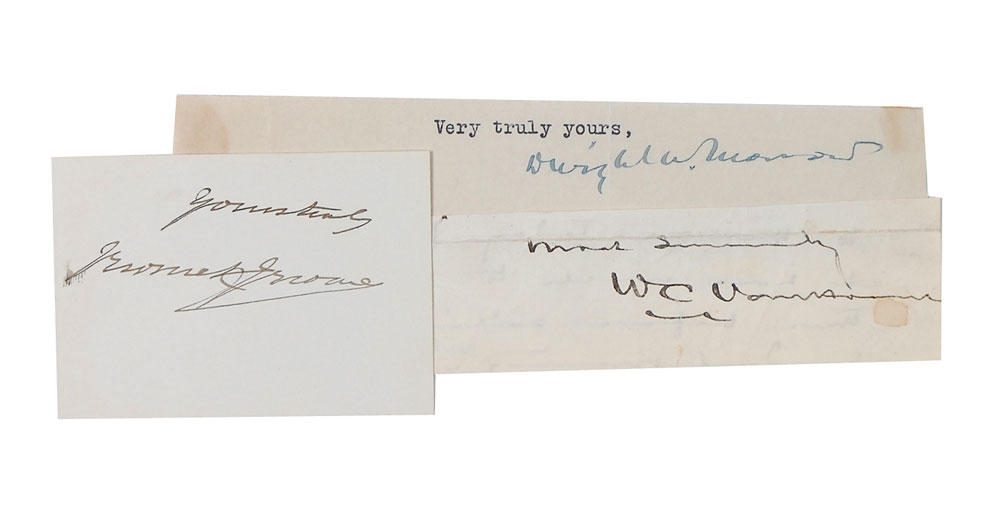 Very truly yours,
Dwight W. Morrow
Yours truly
Jerome K Jerome
Most Sincerely
W C Van Horne